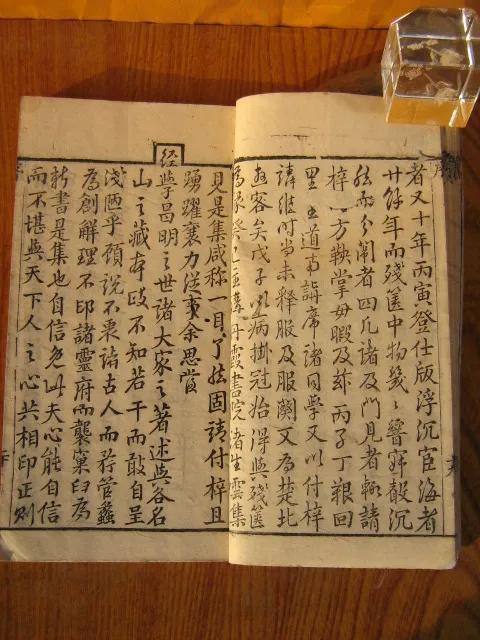 序
者又十年丙寅登仕版浮沉宦海者
廿餘年而殘篋中物幾〻響寂聲沉
然而分闈者四凡諸及門見者輒請
梓方鞅掌毋暇及兹丙子丁艱回
里主道南講席諸同學又以付梓
請維時尚未釋服及服闋又為楚北
逰客矣戊子以病掛冠始得與殘篋
為緣主講丹霞書院諸生雲集
見是集咸称一目了然固請付梓且
踴躍襄力從事余思當
經學昌明之世諸大家之著述與各名
山之藏本不知若干而敢自呈
淺陋乎顧說不衷諸古人而矜管蠡
為創解理不印諸靈府而襲窠臼為
新書是集也自信免此夫心能自信
而不堪與天下人之心共相印正則